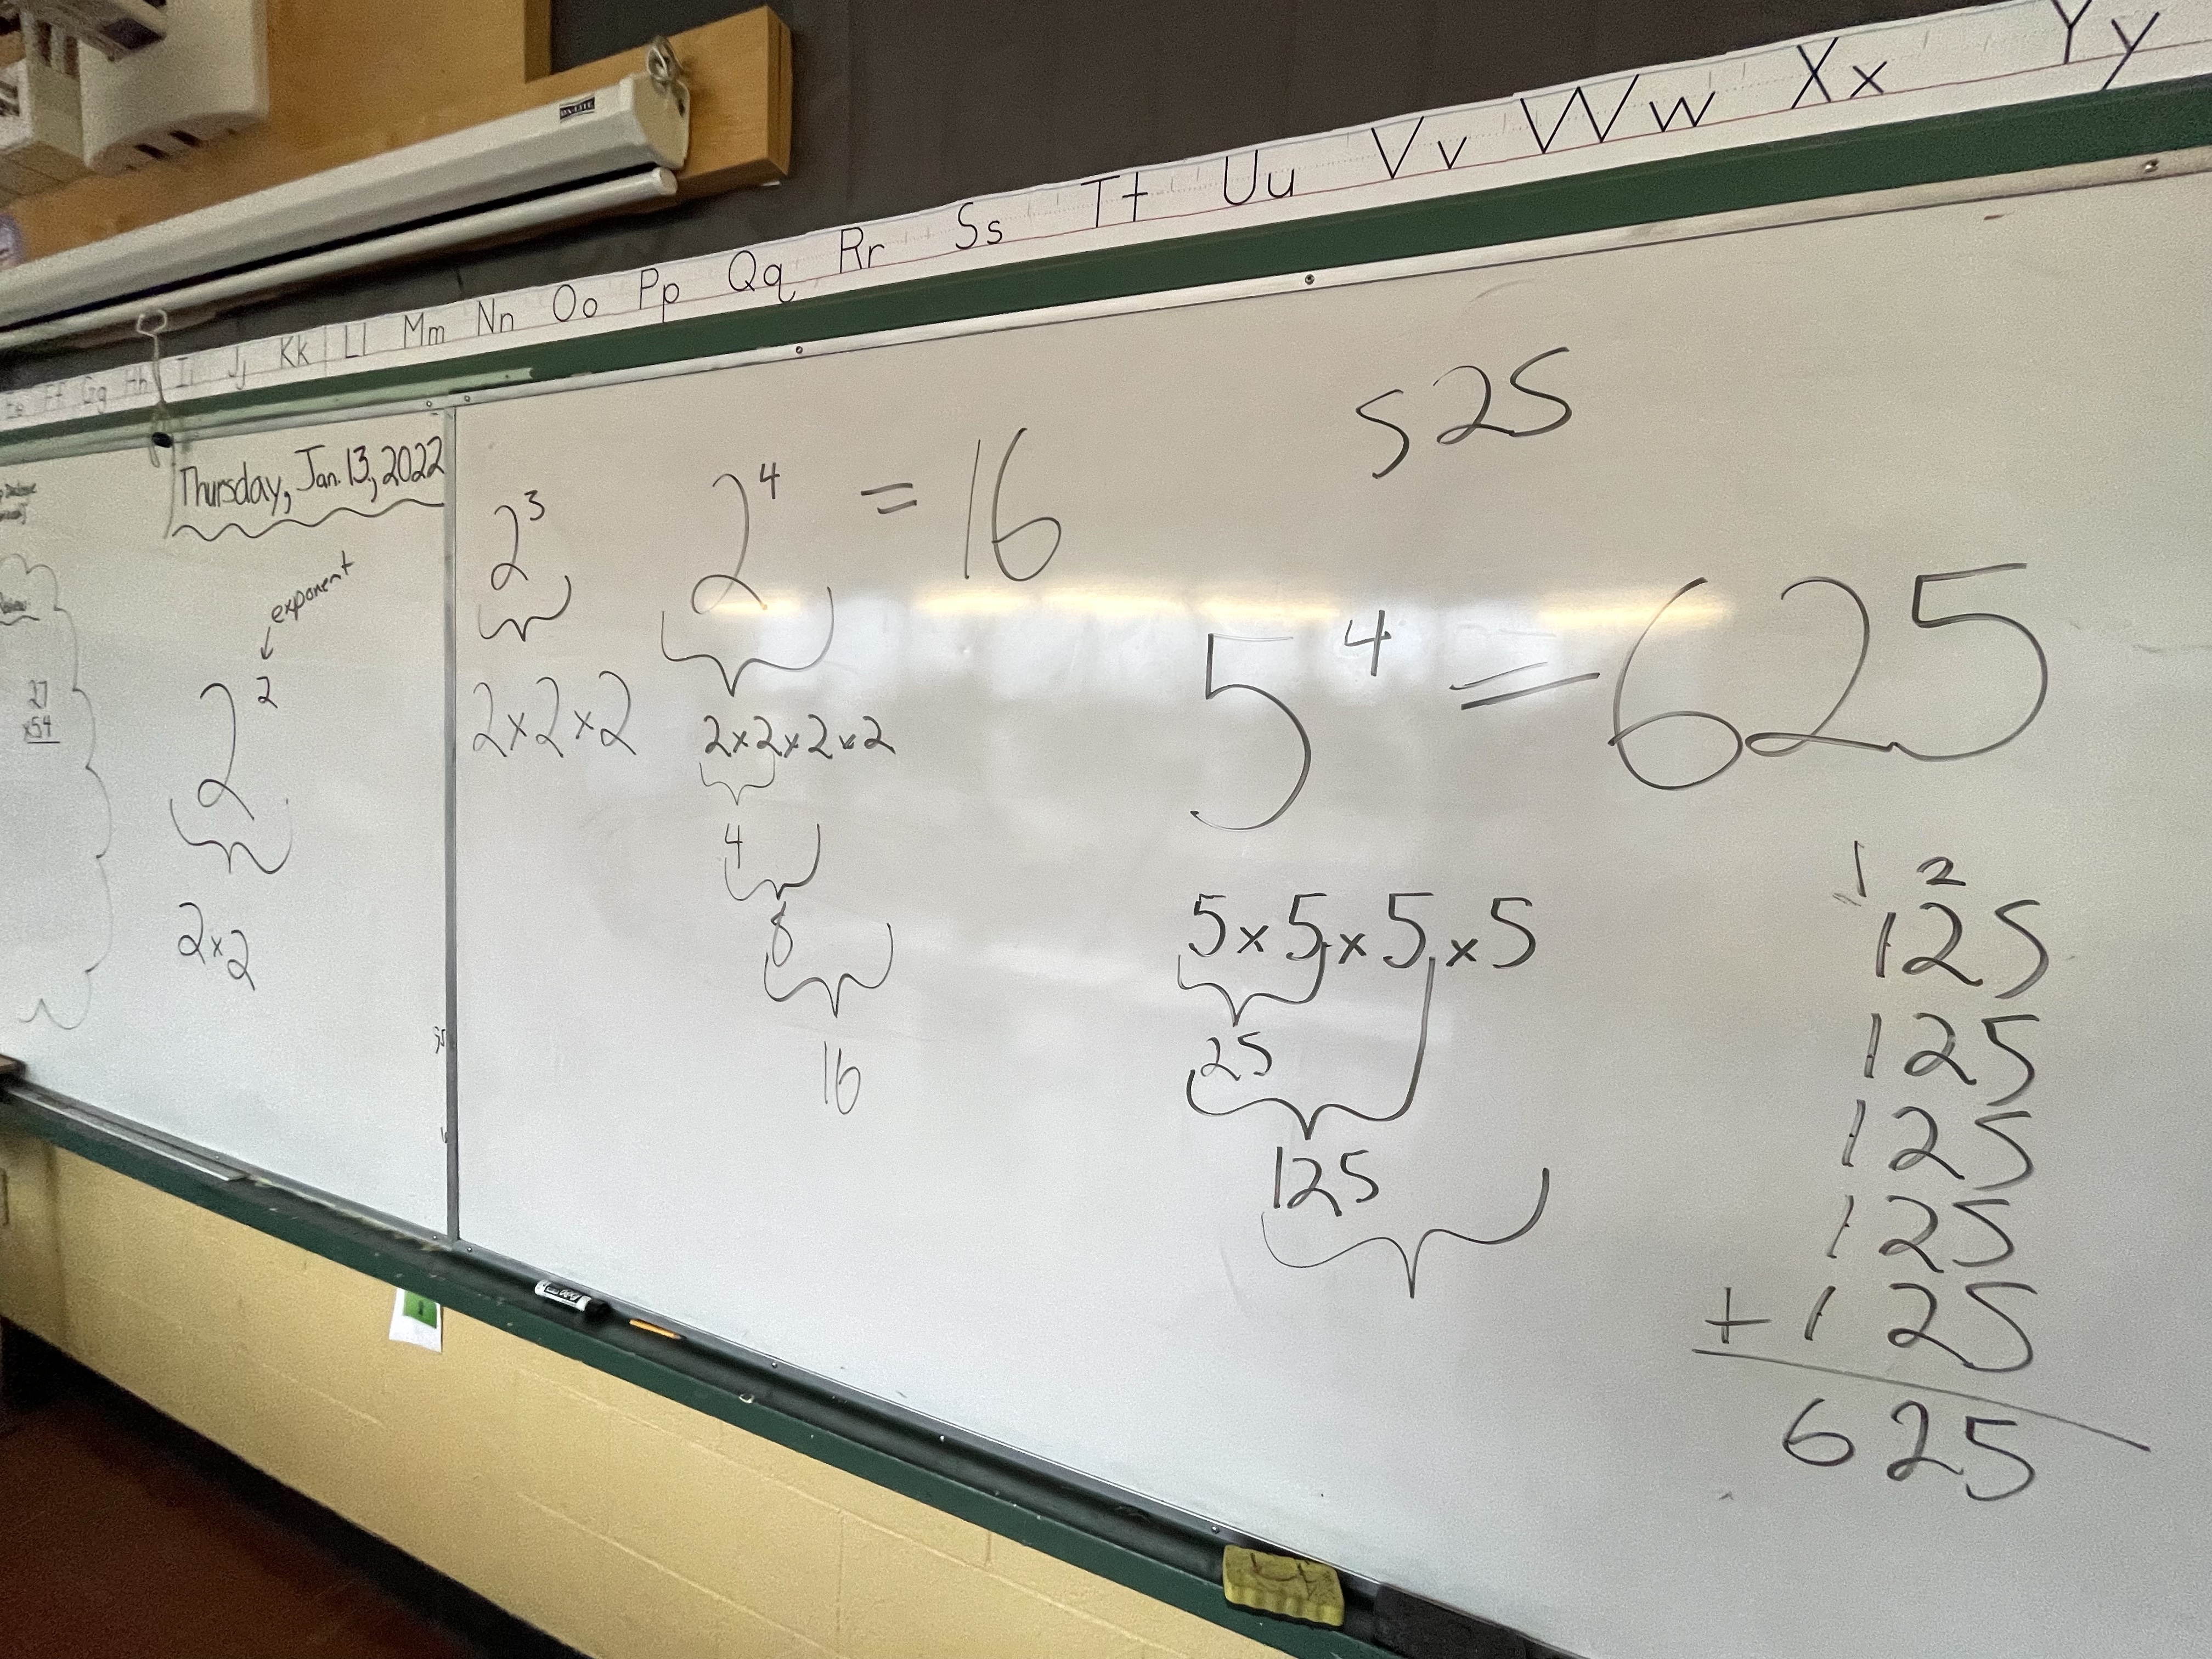 Ee Ff Gg Hh Ii Jj Kk Ll Mm Nn Oo Pp Qq Rr Ss Tt Uu Vv Ww Xx Yy
Thursday, Jan. 13, 2022
27
x54
exponent
2²
2x2
2³
2x2x2
2⁴ = 16
2x2x2x2
4
8
16
525
5⁴ = 625
5x5x5x5
25
125
1 2
125
125
125
125
+ 125
625